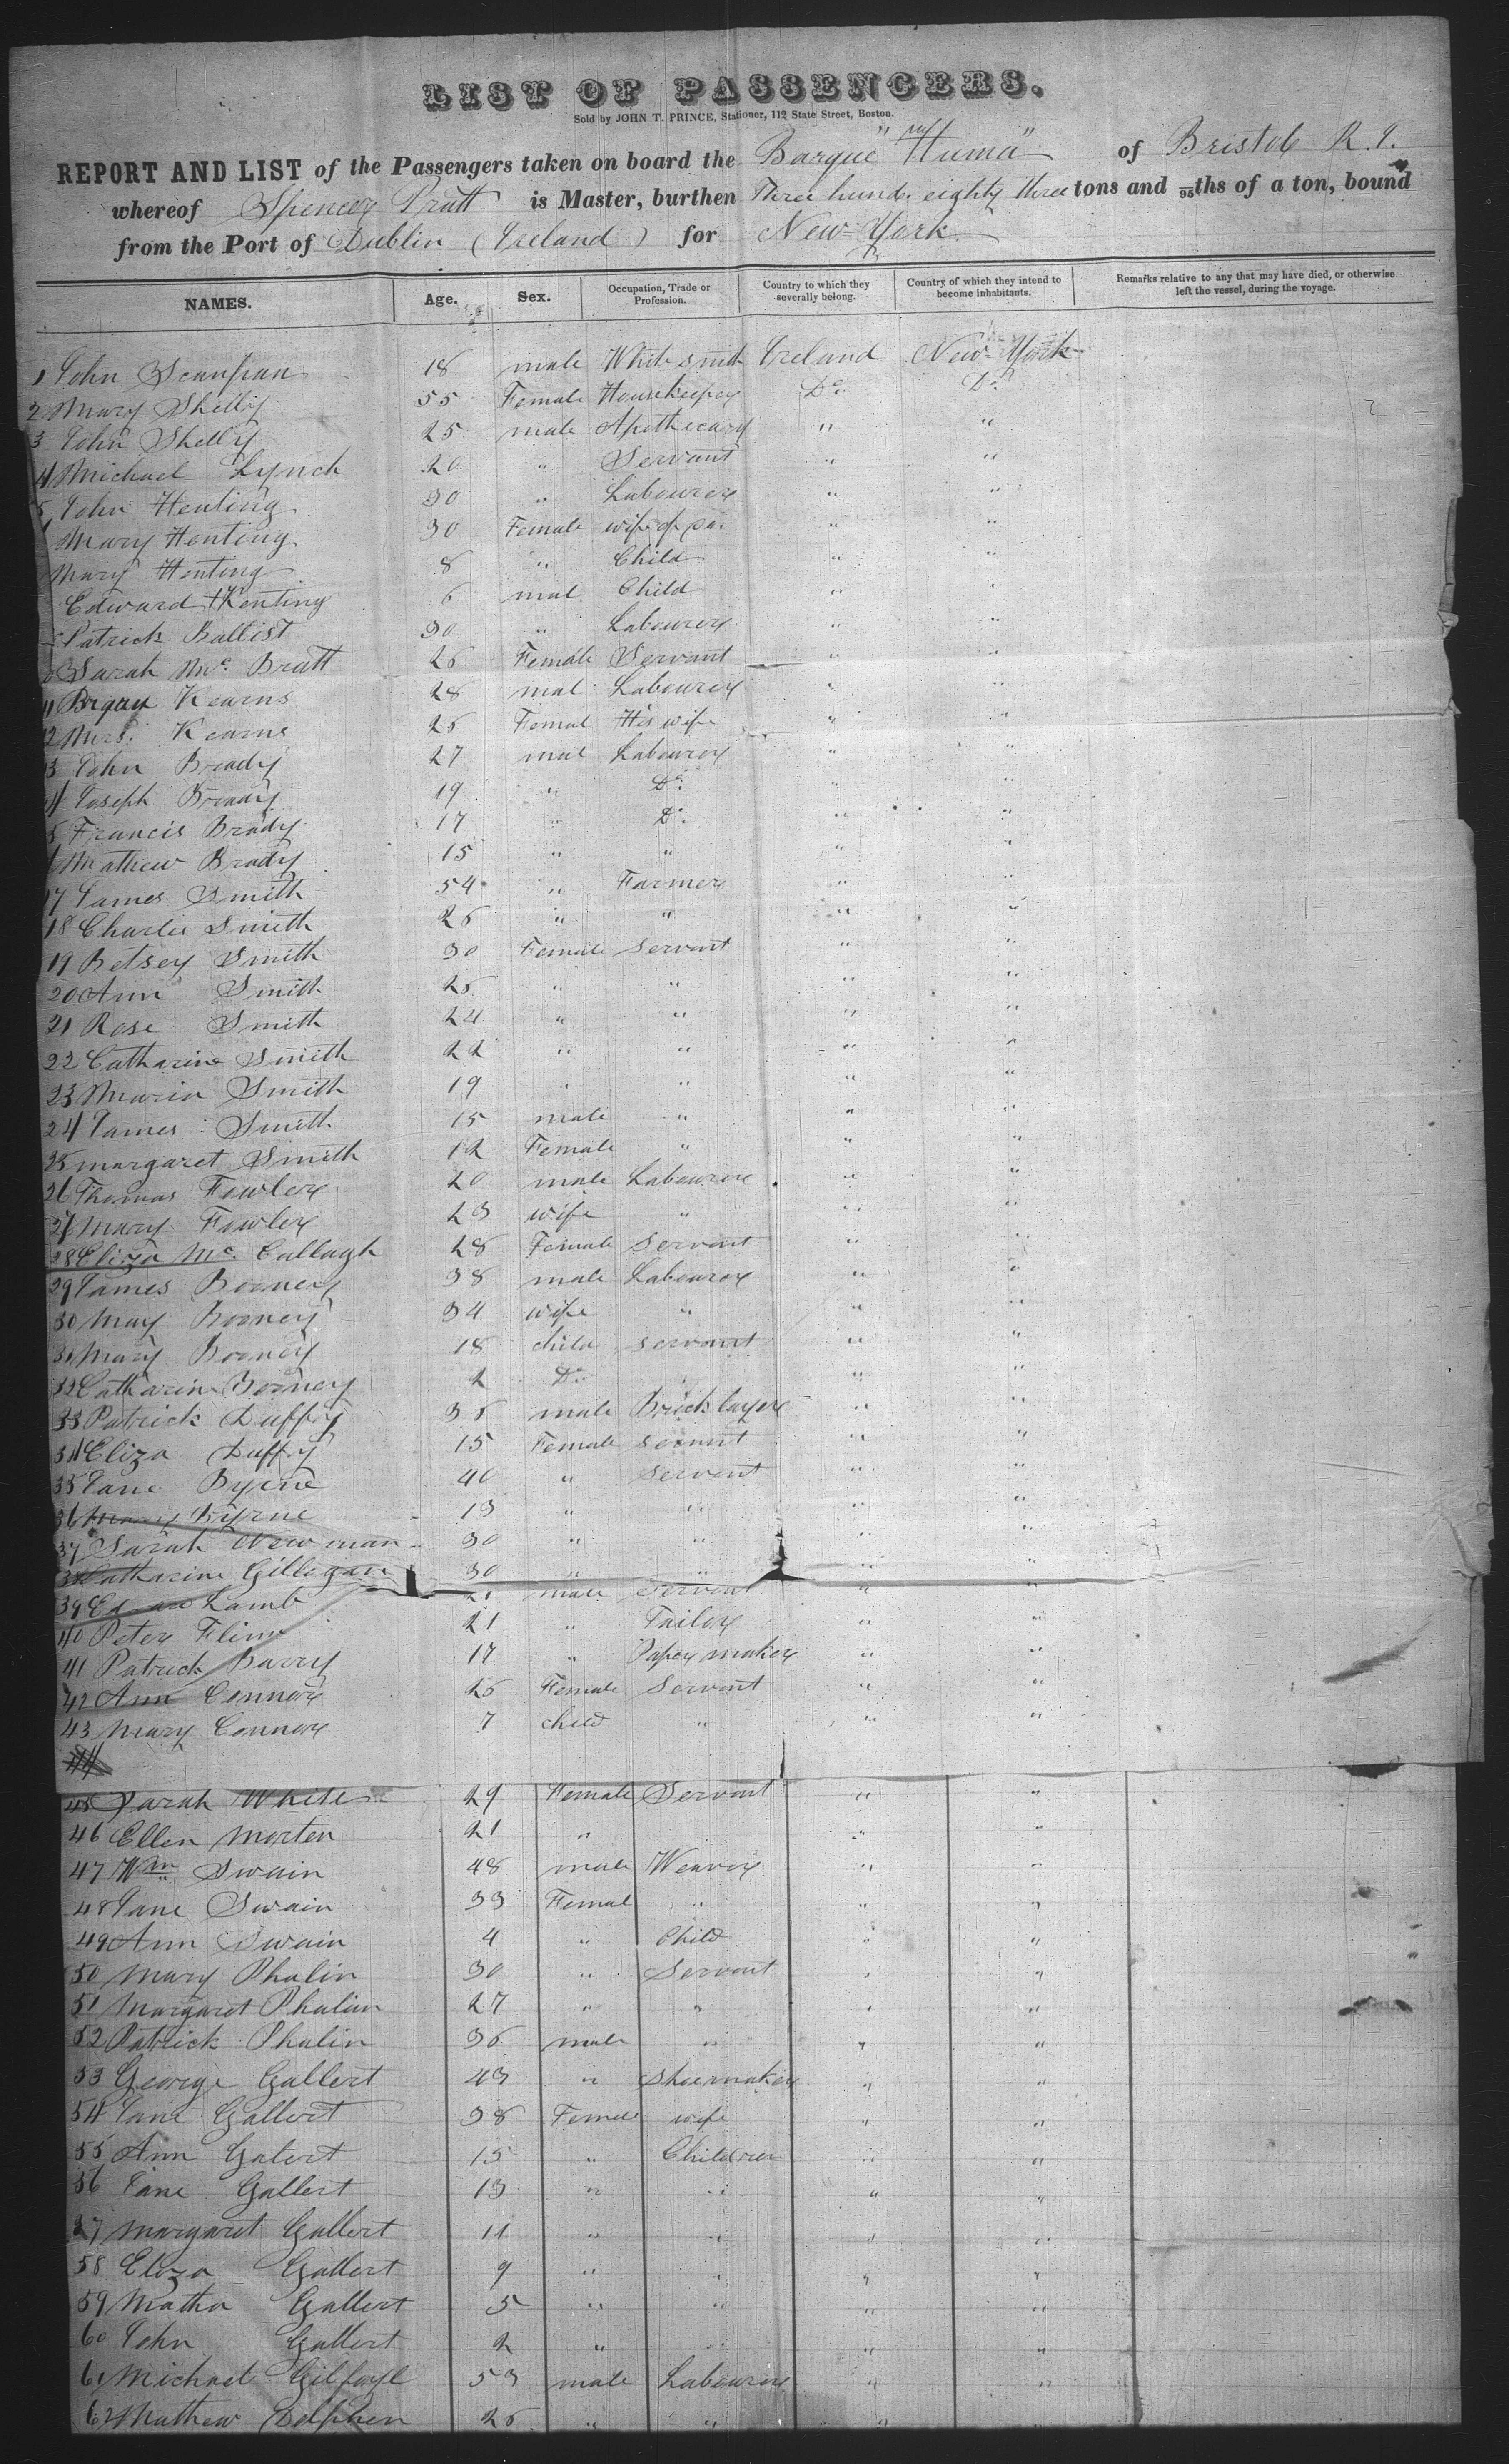 LIST OF PASSENGERS.
Sold by JOHN T. PRINCE, Stationer, 112 State Street, Boston.
REPORT AND LIST of the Passengers taken on board the Barque "Huma" of Bristol R. I.
whereof Spencer Pratt is Master, burthen Three hund. eighty three tons and /95ths of a ton, bound
from the Port of Dublin (Ireland) for New-York
NAMES. Age. Sex. Occupation, Trade or Profession. Country to which they severally belong. Country of which they intend to become inhabitants. Remarks relative to any that may have died, or otherwise left the vessel, during the voyage.
1 John 18 male White smith Ireland New-York
2 Mary Shelly 55 Female Housekeeper Do. Do.
3 John Shelly 25 male Apothecary " "
4 Michael Lynch 20 " Servant " "
5 John Henting 30 " Labourer " "
Mary Henting 30 Female wife of " "
Mary Henting 8 " Child " "
Edward Henting 6 mal Child " "
Patrick Balbist 30 " Labourer " "
Sarah Mc. Bratt 26 Female Servant " "
11 Bryan Kearns 28 mal Labourer " "
12 Mrs. Kearns 26 Femal His wife " "
13 John Brady 27 mal Labourer " "
14 Joseph Brady 19 " Do. " "
15 Francis Brady 17 " Do. " "
16 Mathew Brady 15 " " " "
17 James Smith 54 " Farmer " "
18 Charles Smith 26 " " " "
19 Betsey Smith 30 Female Servant " "
20 Ann Smith 25 " " " "
21 Rose Smith 24 " " " "
22 Catharine Smith 22 " " " "
23 Maria Smith 19 " " " "
24 James Smith 15 male " " "
25 margaret Smith 12 Female " " "
26 Thomas Fowler 20 male Labourer " "
27 Mary Fowler 23 wife " " "
28 Eliza Mc. Cullagh 28 Female Servant " "
29 James Booney 38 male Labourer " "
30 May Booney 34 wife " " "
31 Mary Booney 18 child servant " "
32 Catharine Booney 2 Do. " "
33 Patrick Duffy 36 male Bricklayer " "
34 Eliza Duffy 15 Female servant " "
35 Jane Byrne 40 " servant " "
36 Mary Byrne 13 " " " "
37 Sarah Newman 30 " " " "
38 Catharine Gillegan 30 " " " "
39 Lamb 21 male Servant " "
40 Peter Flinn 21 " Tailor " "
41 Patrick Barry 17 " Paper maker " "
42 Ann Connor 26 Female Servant " "
43 Mary Connor 7 child " " "
44
45 Sarah White 29 Female Servant " "
46 Ellen Morten 21 " " "
47 Wm Swain 48 male Weaver " "
48 Jane Swain 33 Femal " " "
49 Ann Swain 4 " Child " "
50 Mary Phalin 30 " Servant " "
51 Margaret Phalan 27 " " " "
52 Patrick Phalin 36 male " " "
53 George Gallert 43 " Shoemaker " "
54 Jane Gallert 38 Female wife " "
55 Ann Galert 15 " Children " "
56 Jane Gallert 13 " " " "
57 Margaret Gallert 11 " " " "
58 Eliza Gallert 9 " " " "
59 Matha Gallert 5 " " " "
60 John Gallert 2 " " " "
61 Michael Gilfoyl 53 male Labourer " "
62 Mathew Dolphen 26 " " " "